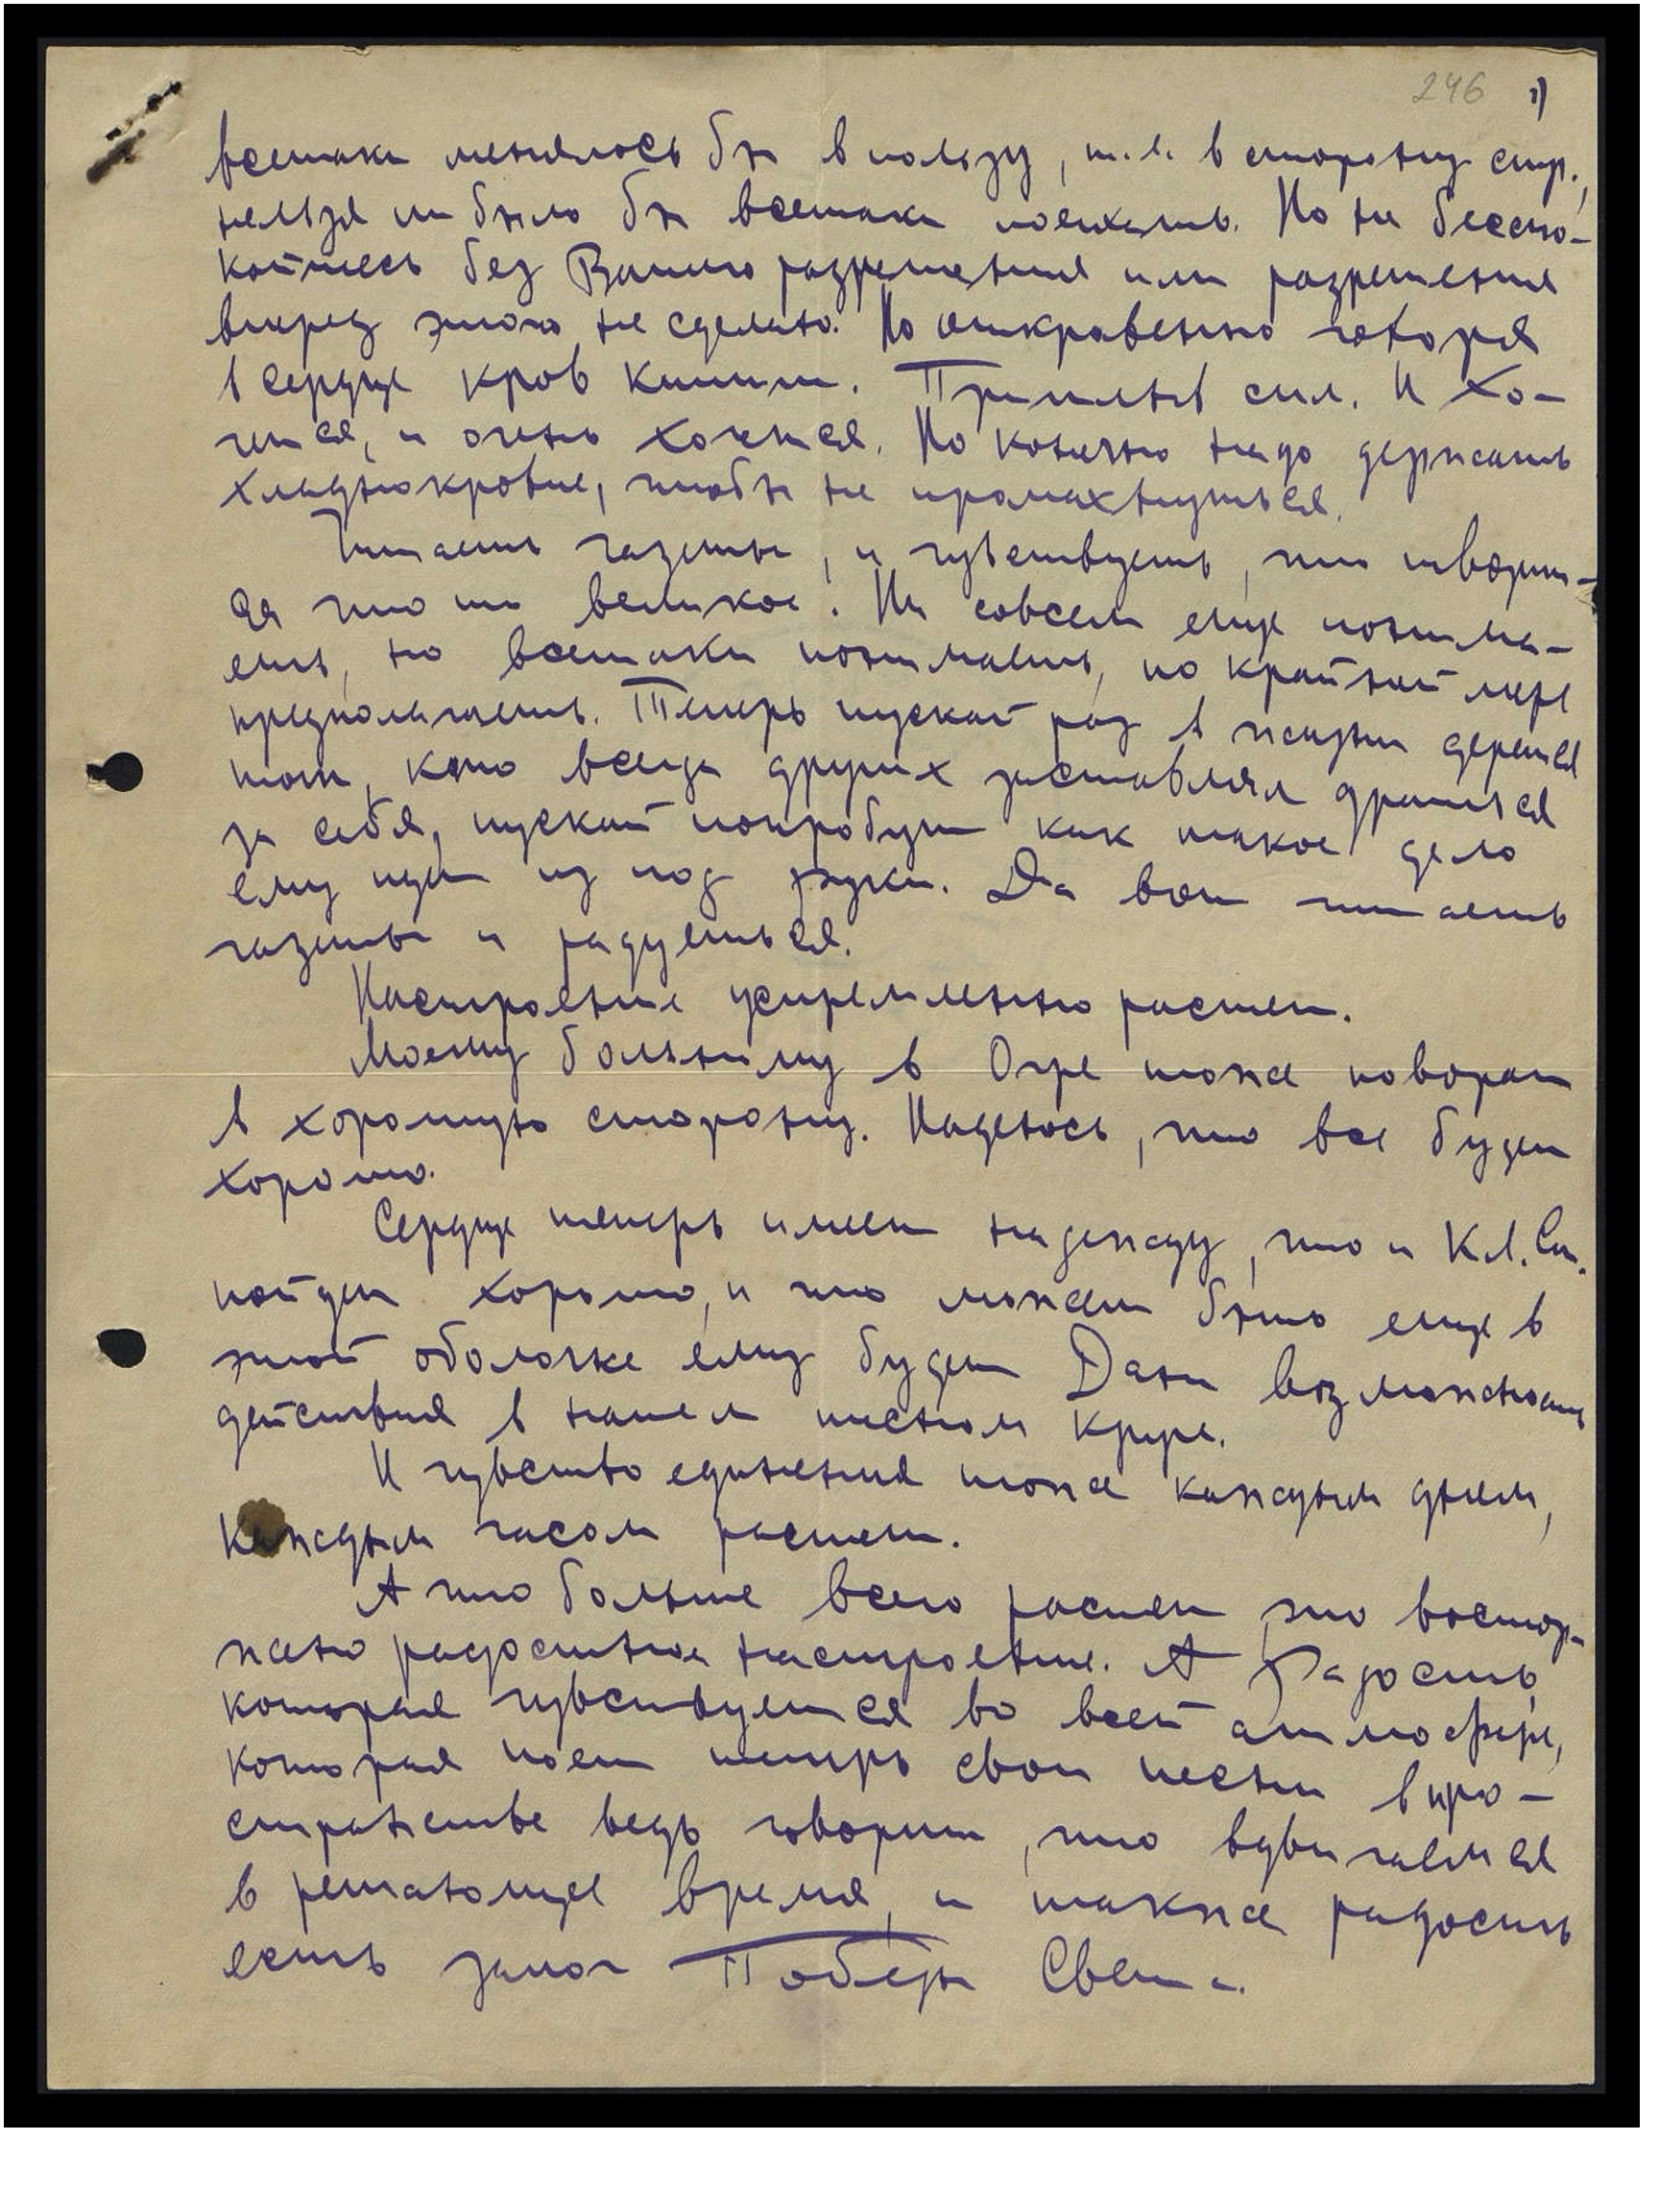 246 1)
всетаки менялось бы в пользу, т.е. в сторону стр.,
нельзя ли было бы всетаки поехать. Но не беспо-
койтесь без Вашего разрешения или разрешения
вперед этого не сделаю. Но откравенно говоря
в сердце кров кипит. Прилив сил. И хо-
чется, и очень хочется. Но конечно надо держать
хладнокровие, чтобы не промахнуться.
Читаешь газеты, и чувствуешь, что творит-
ся что то великое! Не совсем еще понима-
ешь, но всетаки понимаешь, по крайней мере
предполагаешь. Теперь пускай раз в жизни дерется
тот, кто всегда других заставлял драться
за себя, пускай попробует как такое дело
ему идет из под руки. Да вот читаешь
газеты и радуешься.
Настроение устремленно растет.
Моему больному в Огре тоже поворот
в хорошую сторону. Надеюсь, что все будет
хорошо.
Сердце теперь имеет надежду, что и Кл. Ст.
пойдет хорошо, и что может быть еще в
этой оболочке ему будет Дана возможность
действия в нашем тесном круге.
И чувство единения тоже каждым днем,
каждым часом растет.
А что больше всего растет это востор-
жено радостное настроение. А Радость,
которая чувствуется во всей атмосфере,
которая поет теперь свои песни в про-
странстве ведь говорит, что вдвигаемся
в решающее время, и также радость
есть залог Победы Света.